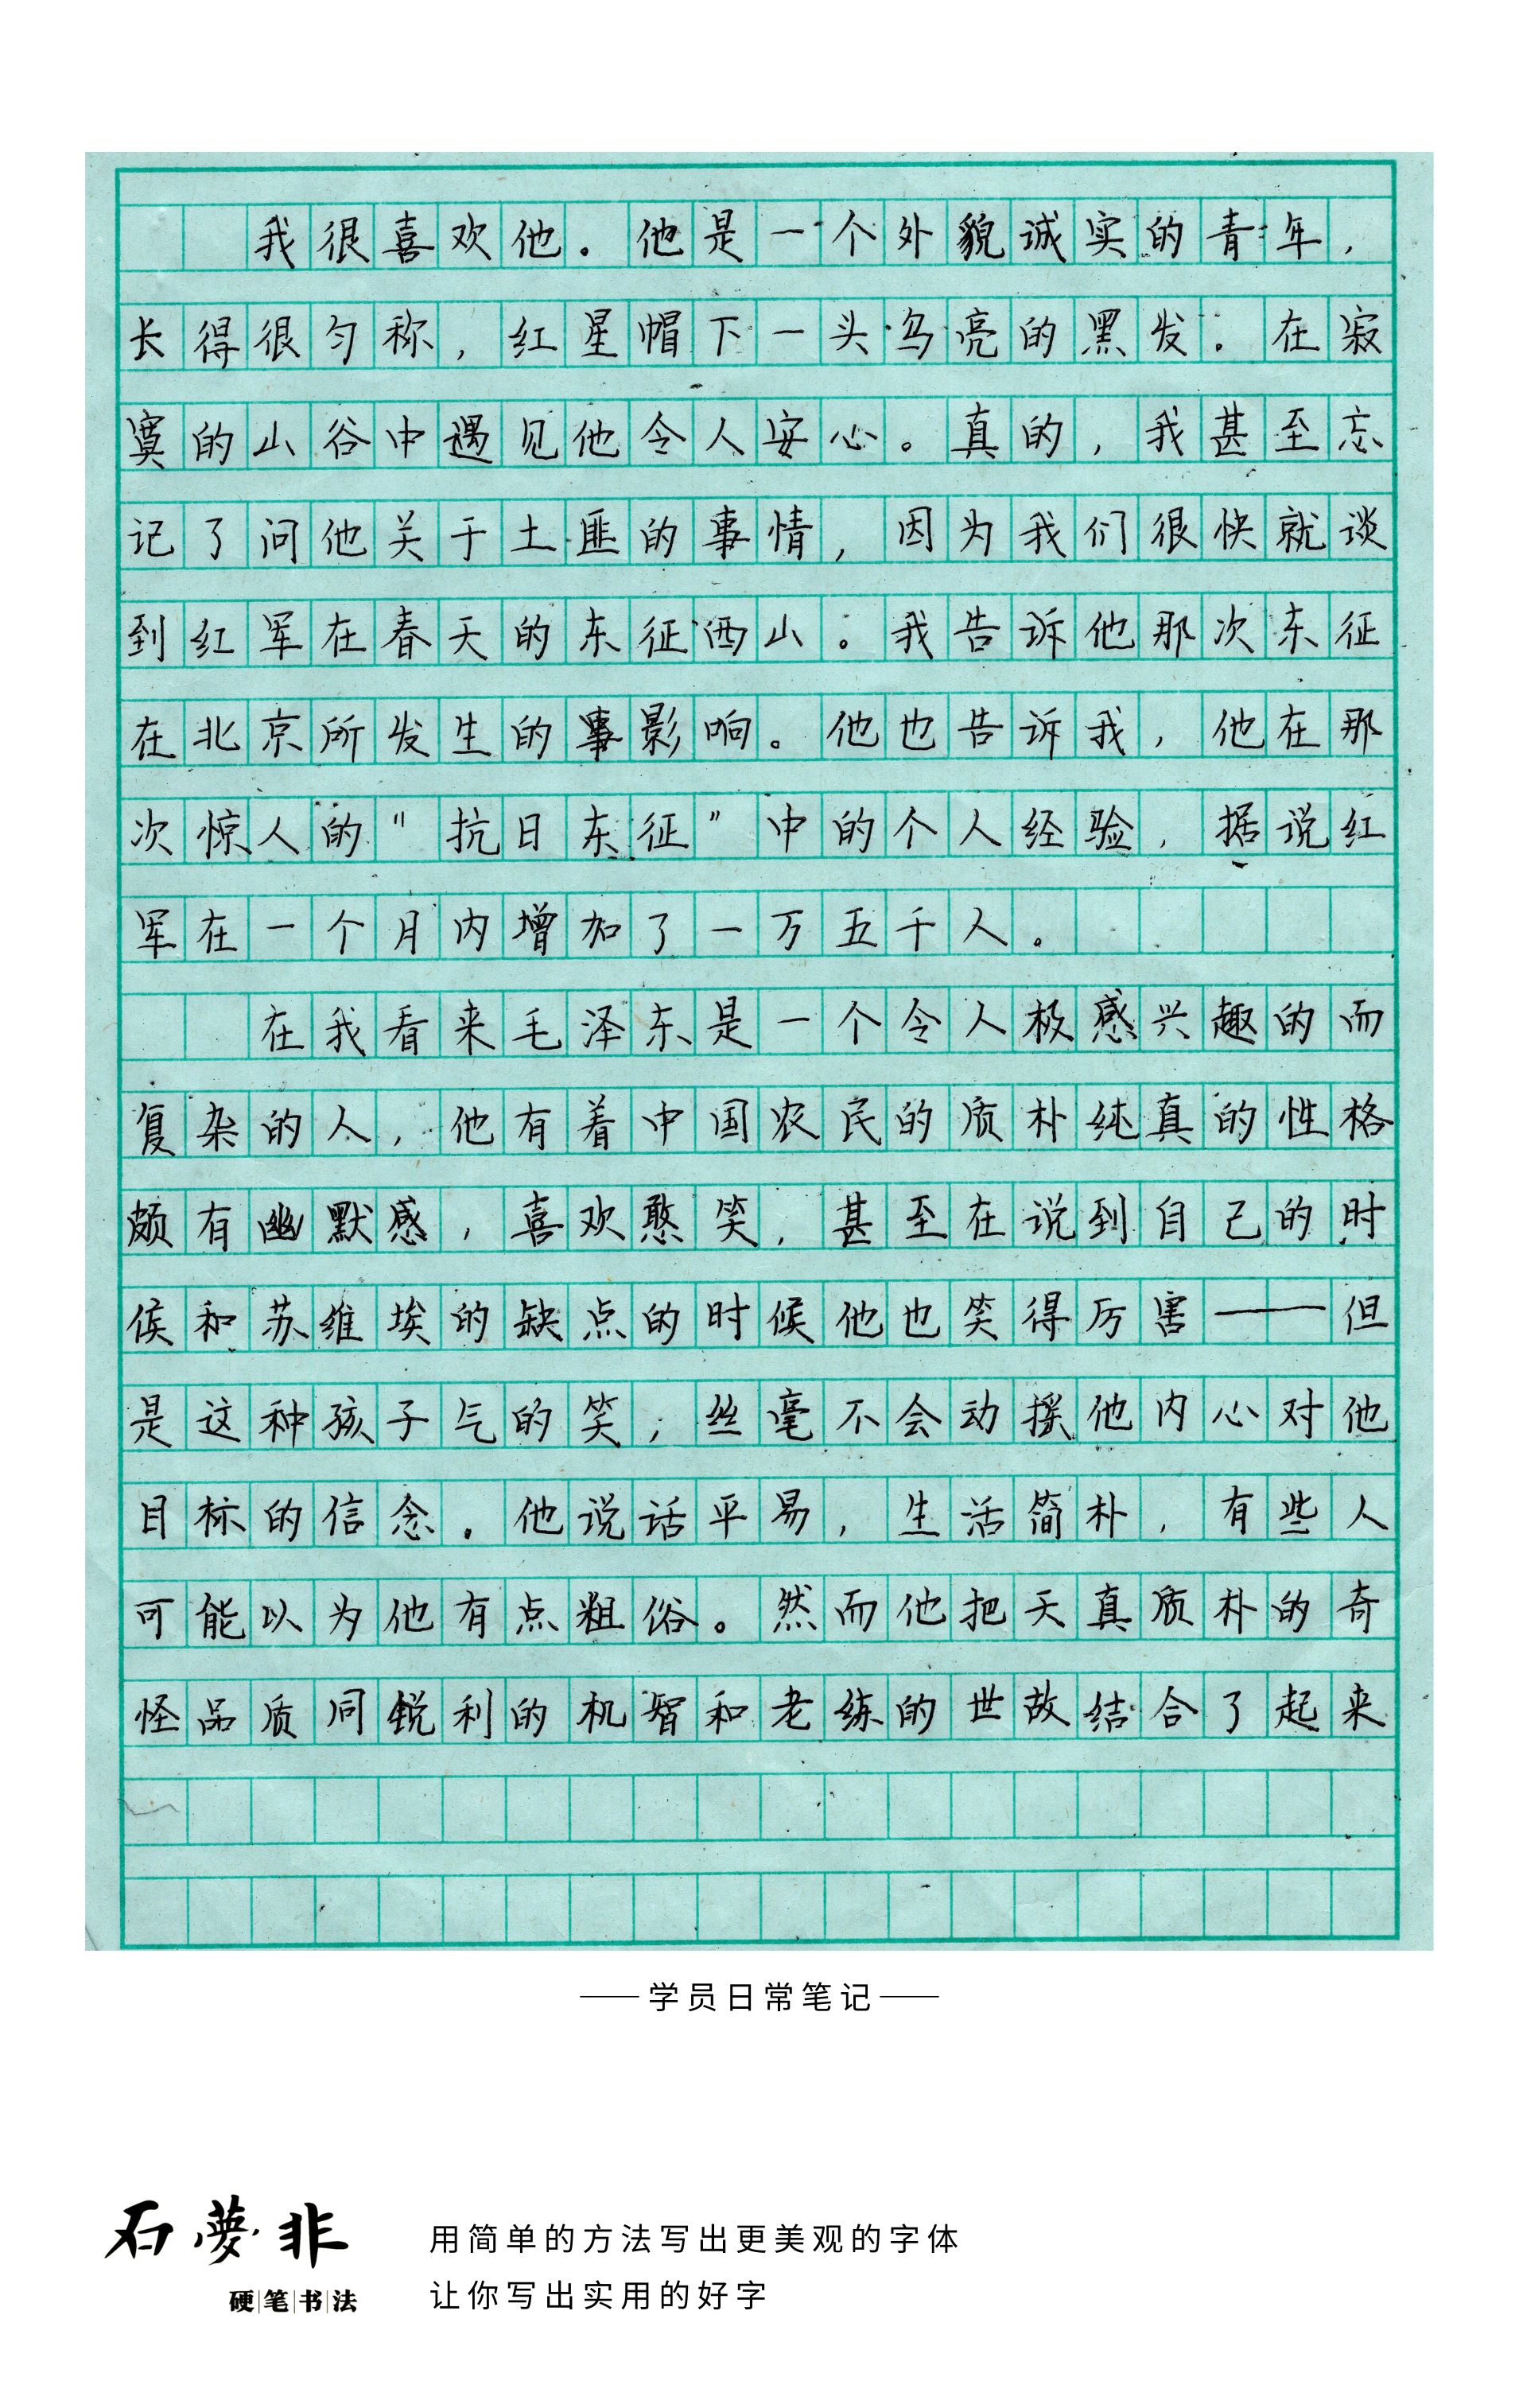 我很喜欢他。他是一个外貌诚实的青年，
长得很匀称，红星帽下一头乌亮的黑发。在寂
寞的山谷中遇见他令人安心。真的，我甚至忘
记了问他关于土匪的事情，因为我们很快就谈
到红军在春天的东征西山。我告诉他那次东征
在北京所发生的事影响。他也告诉我，他在那
次惊人的"抗日东征"中的个人经验，据说红
军在一个月内增加了一万五千人。
在我看来毛泽东是一个令人极感兴趣的而
复杂的人，他有着中国农民的质朴纯真的性格
颇有幽默感，喜欢憨笑，甚至在说到自己的时
侯和苏维埃的缺点的时候他也笑得厉害——但
是这种孩子气的笑，丝毫不会动摇他内心对他
目标的信念。他说话平易，生活简朴，有些人
可能以为他有点粗俗。然而他把天真质朴的奇
怪品质同锐利的机智和老练的世故结合了起来
——学员日常笔记——
石夢非
硬笔书法
用简单的方法写出更美观的字体
让你写出实用的好字